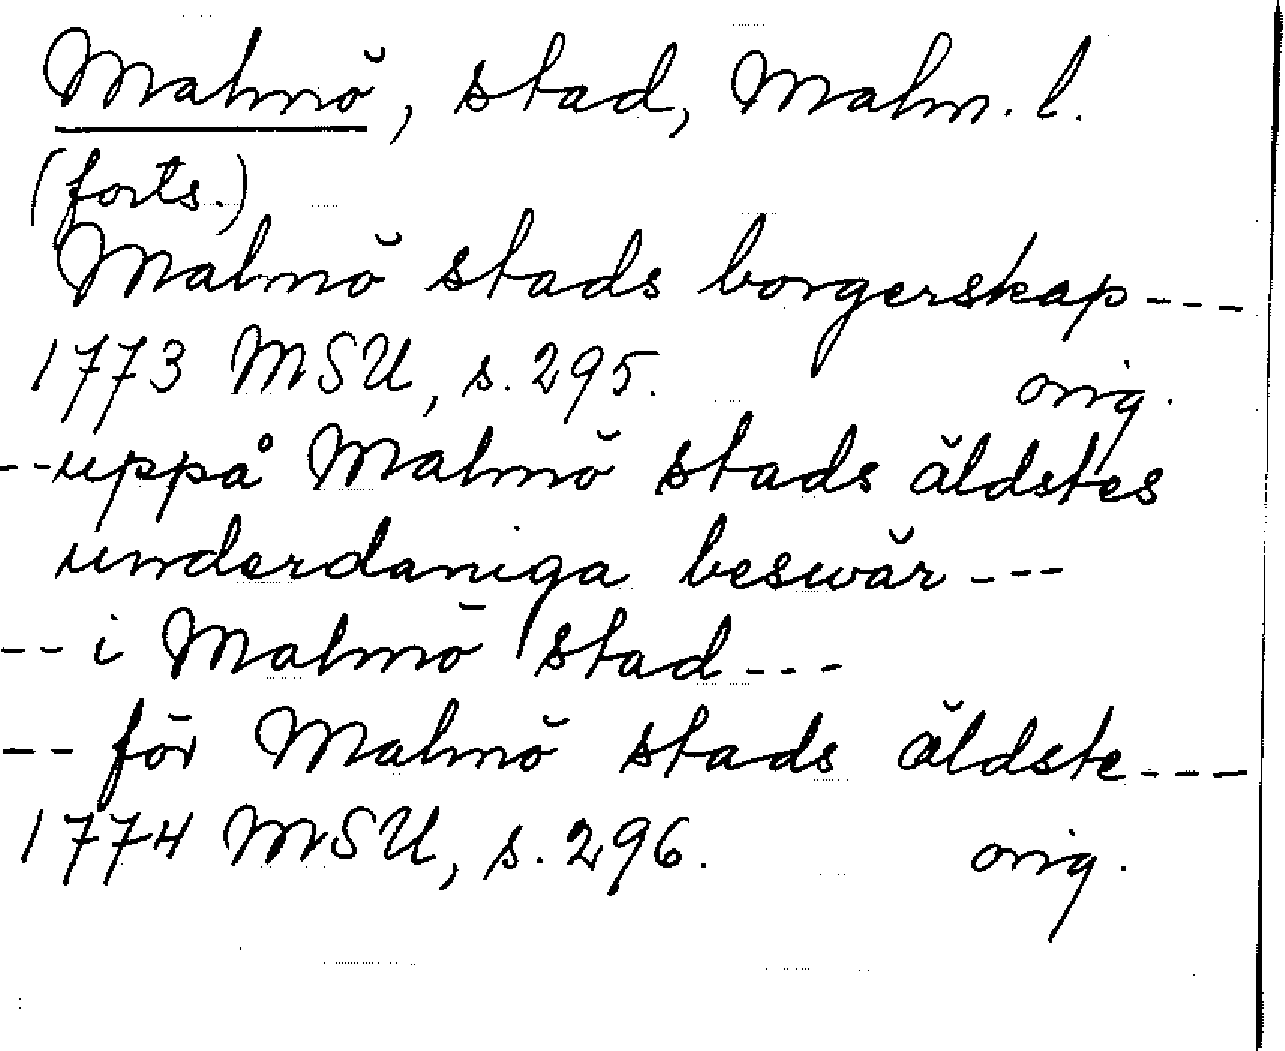 Malmö, stad, Malm. l.
(forts.)
Malmö stads borgerskap---
1773 MSU, s. 295. orig.
--uppå Malmö stads äldstes
underdaniga beswär---
-- i Malmö stad---
-- för Malmö stads äldste---
1774 MSU, s. 296. orig.